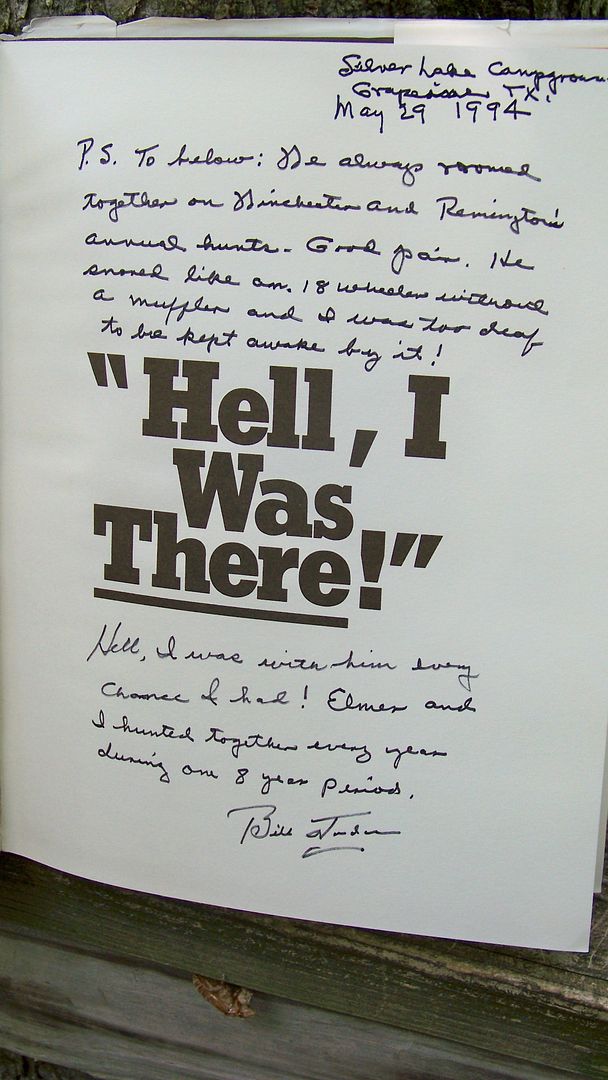 Silver Lake Campground
Grapevine TX.
May 29 1994
P.S. To below: We always roomed
together on Winchester and Remington's
annual hunts - Good pair. He
snored like an 18 wheeler without
a muffler and I was too deaf
to be kept awake by it!
"Hell, I
Was
There!"
Hell, I was with him every
chance I had! Elmer and
I hunted together every year
during one 8 year period.
Bill